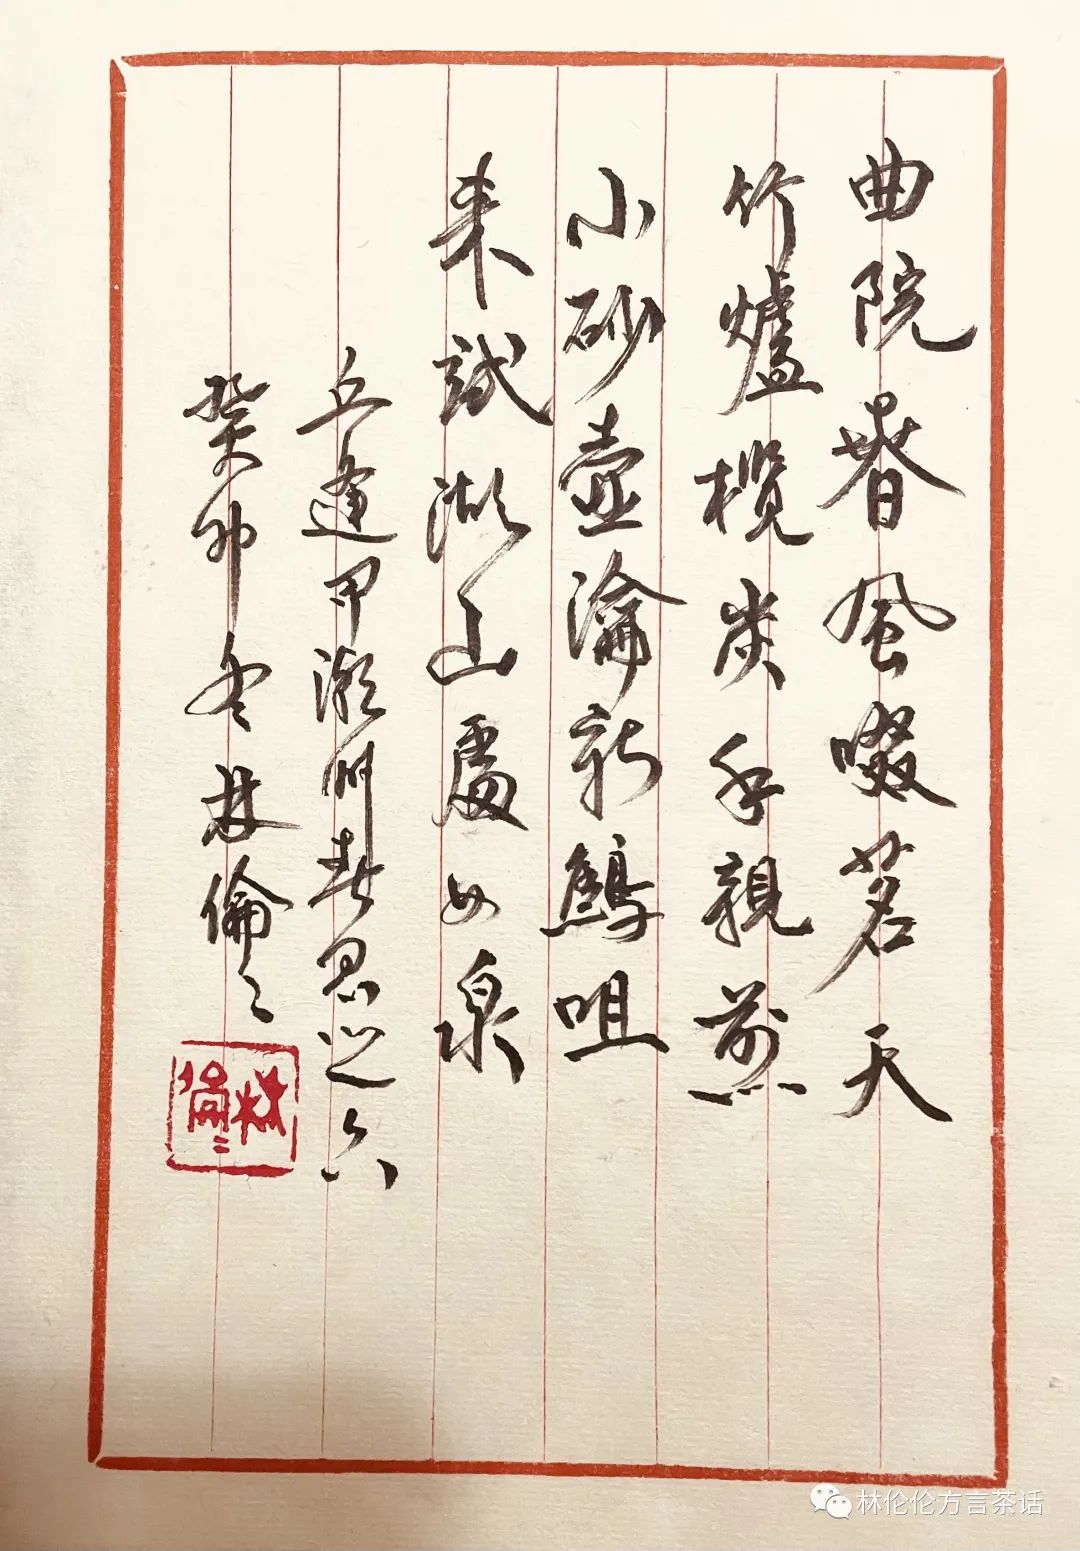 曲院春風啜茗天
竹爐欖炭手親煎
小砂壺瀹新鷦咀
来試湖山處女泉
丘逢甲潮州春思之六
癸卯冬林倫〻
林倫〻
林伦伦方言茶话